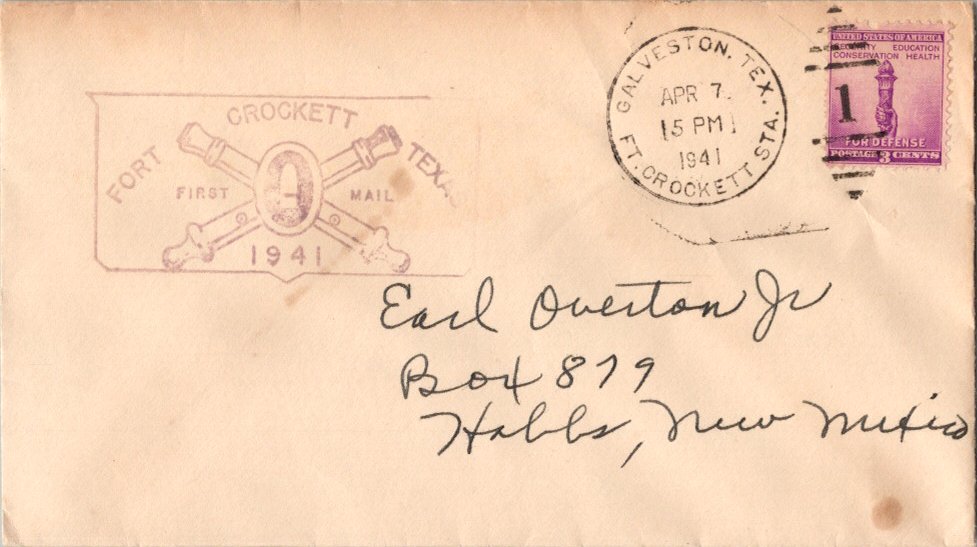 FORT CROCKETT TEXAS
FIRST 9 MAIL
1941
GALVESTON, TEX.
APR 7
5 PM
1941
FT. CROCKETT STA.
1
UNITED STATES OF AMERICA
SECURITY EDUCATION
CONSERVATION HEALTH
FOR DEFENSE
POSTAGE 3 CENTS
Earl Overton Jr
Box 879
Hobbs, New Mexico